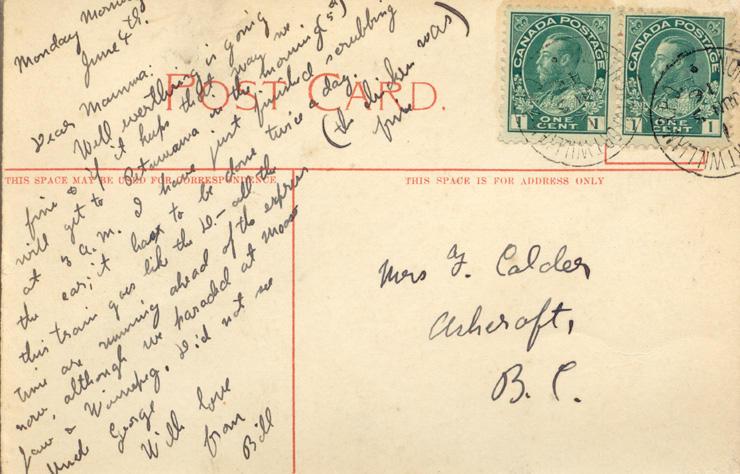 Monday Morning
June 4th.
Dear Mamma:
Well everthing is going
fine & if it keeps that way we
will get to Petawawa in the morning (5th)
at 3 a.m. I have just finished scrubbing
the car; it has to be done twice a day.
this train goes like the D— all the
time are running ahead of the express
now, although we paraded at Moose
Jaw & Winnepeg. Did not see
Uncle George
With love
from
Bill
(the chicken was)
fine
POST CARD.
THIS SPACE MAY BE USED FOR CORRESPONDENCE
THIS SPACE IS FOR ADDRESS ONLY
CANADA POSTAGE
1 ONE CENT 1
CANADA POSTAGE
1 ONE CENT 1
Mrs F. Calder
Ashcroft,
B. C.